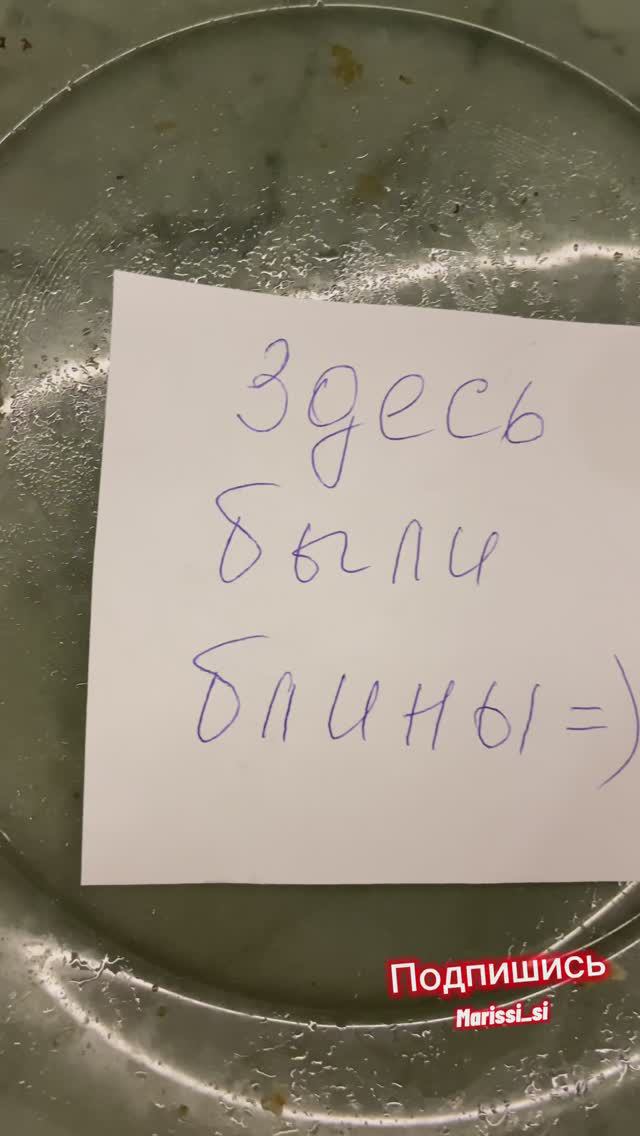 Здесь
были
блины=)
Подпишись
Marissi_si